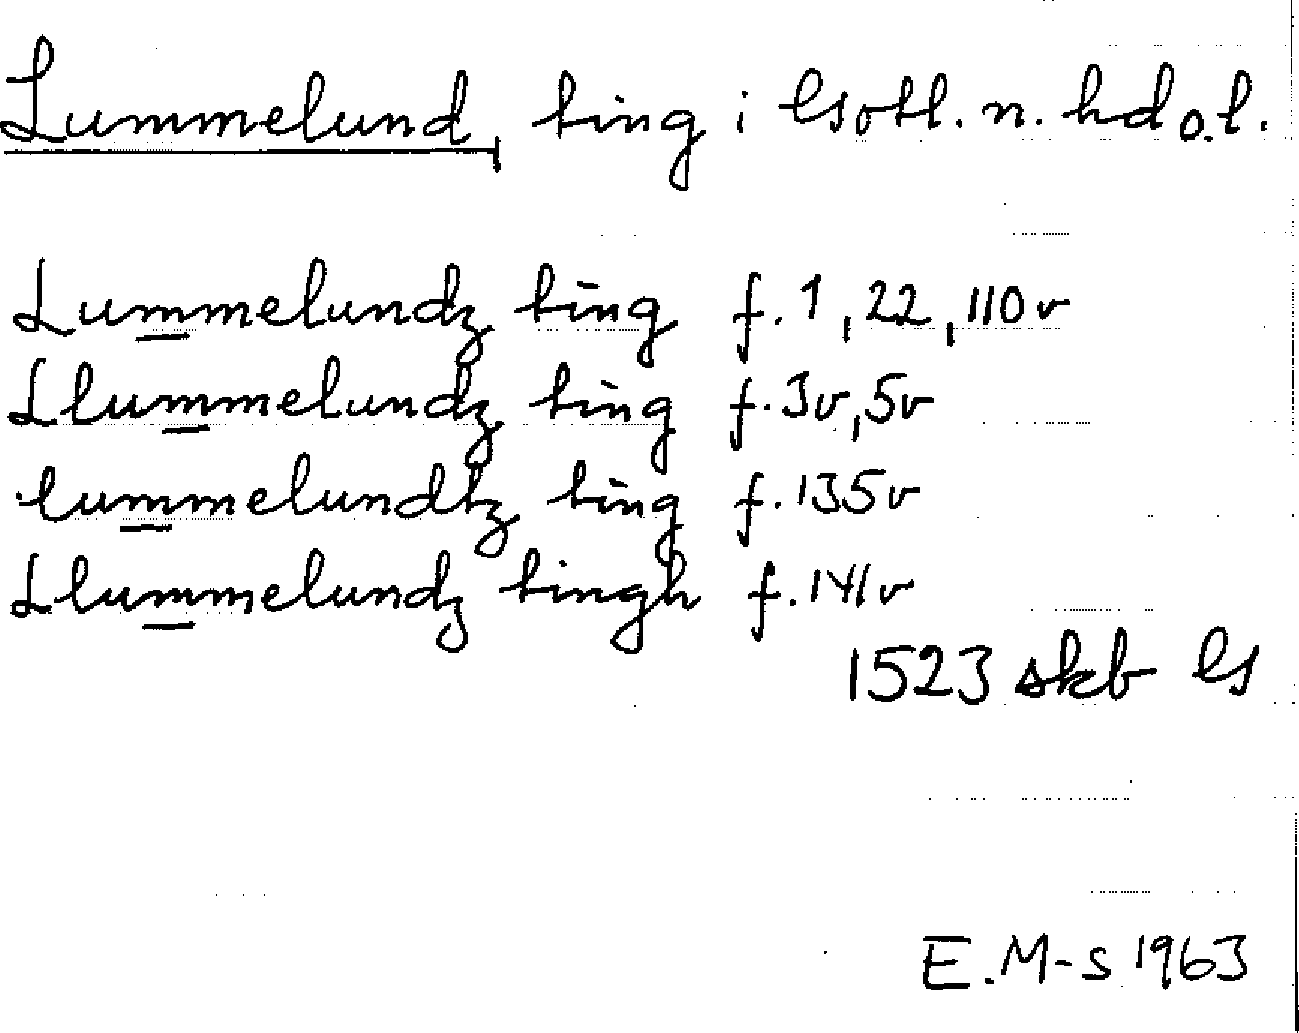 Lummelund, ting i Gotl. n. hd o.l.
Lummelundz ting f. 1, 22, 110v
Llummelundz ting f. 3v, 5v
lummelundtz ting f. 135v
Llummelundz tingh f. 141v
1523 skb G
E. M-s 1963